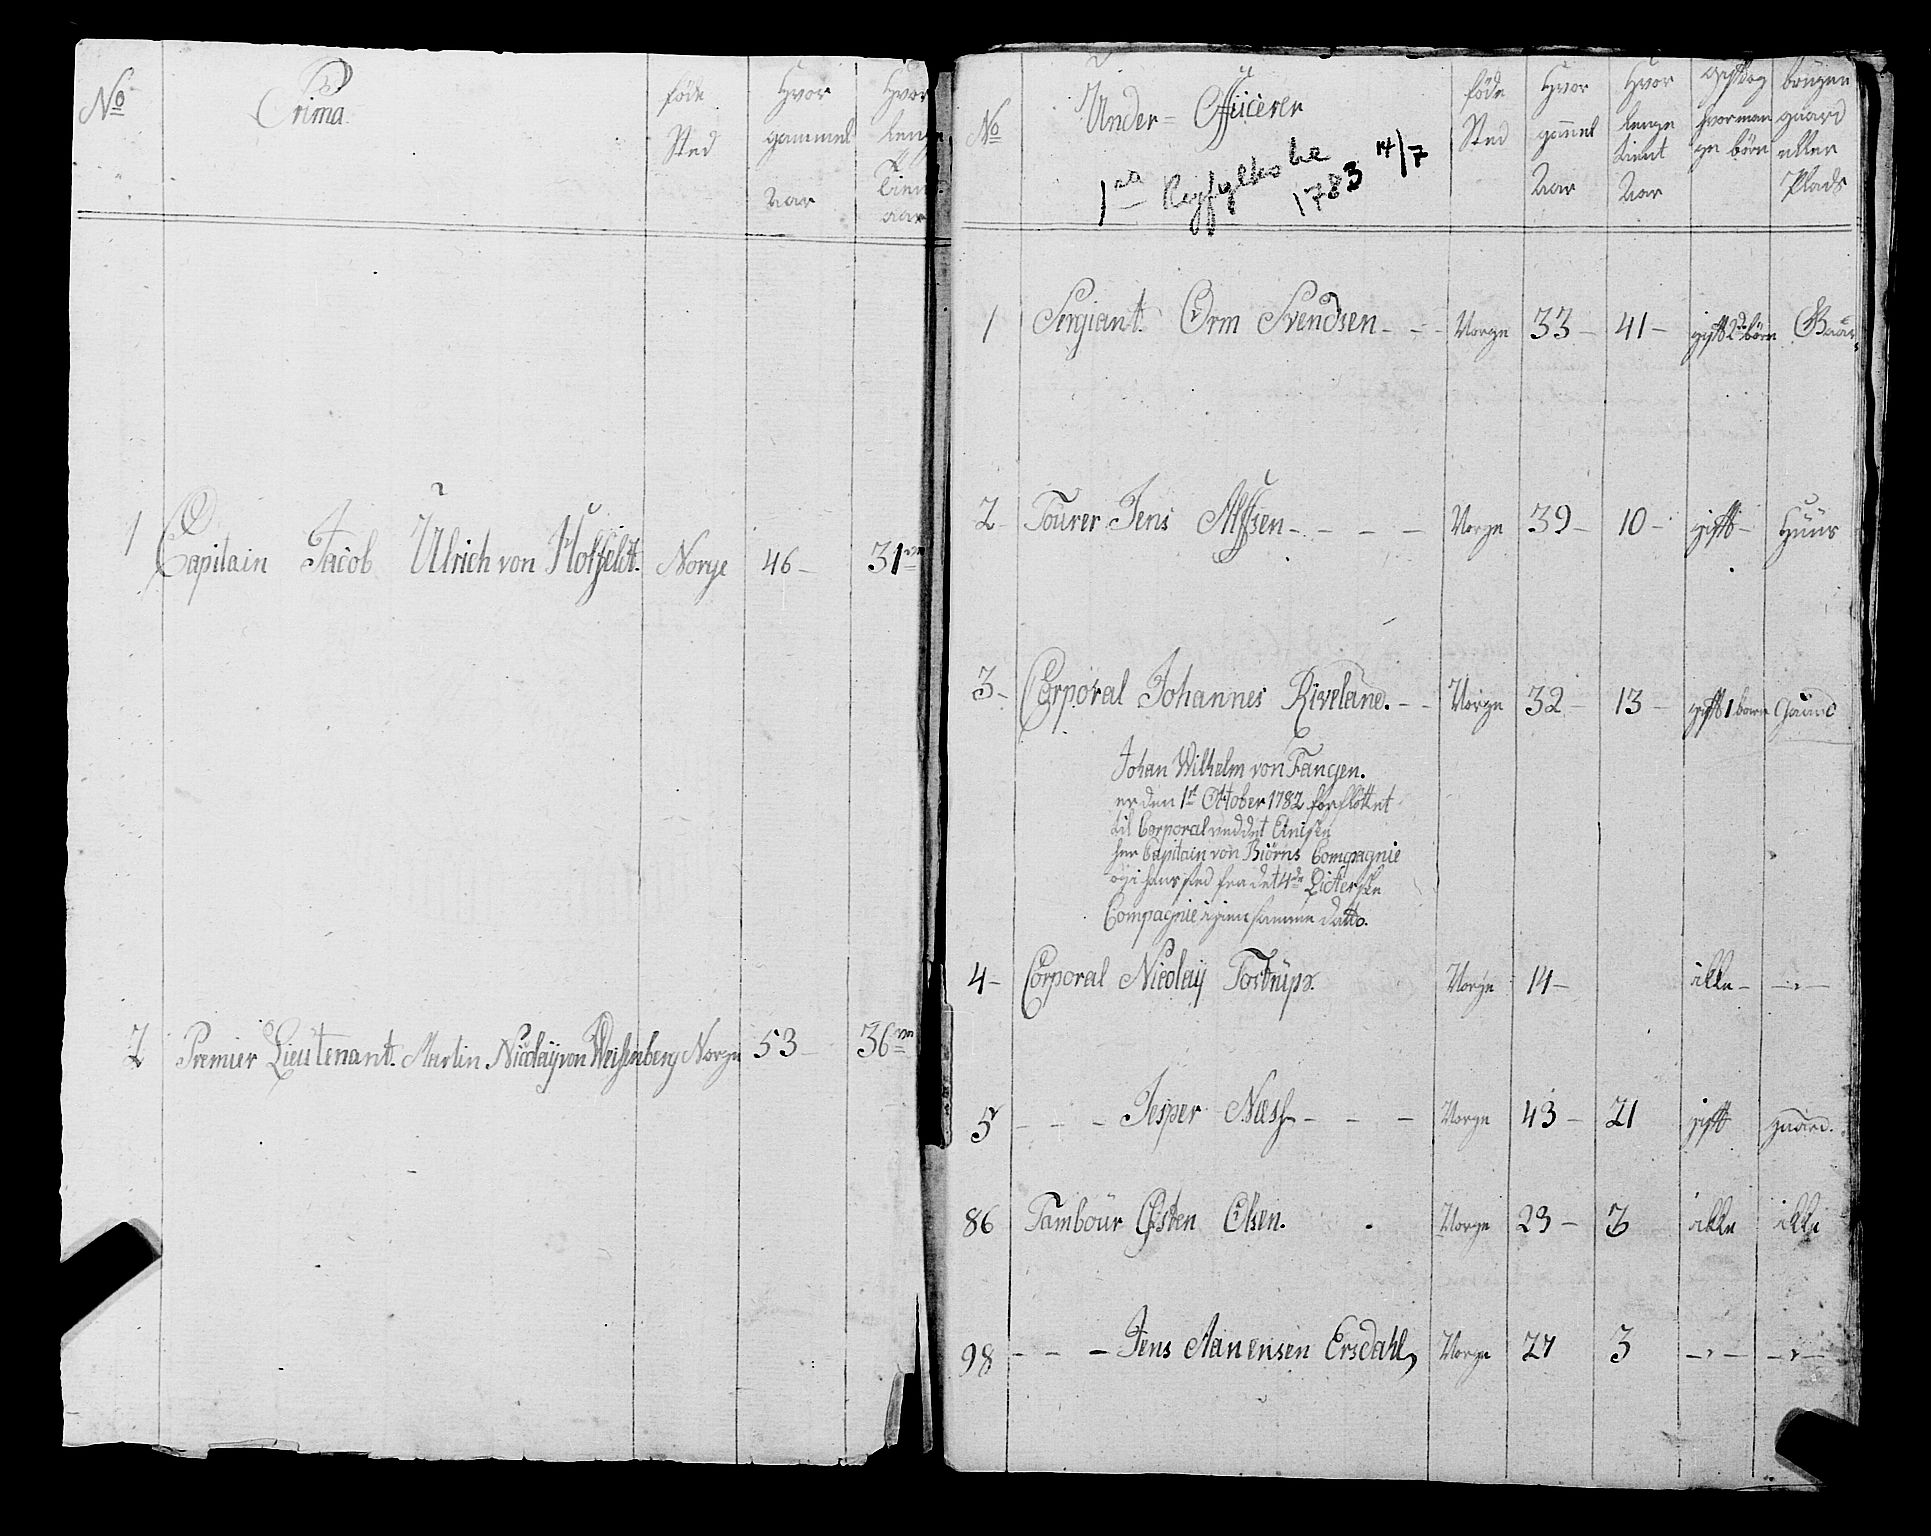 No
Prima
føde
Sted
Hvor
gammel
Aar
Hvor
lenge
Tient
aar
1 Capitain Jacob Ulrich von Hotfeldt. Norge 46 31
2 Premier Lieutenant. Martin Nicolaÿ von Weisenberg Norge 53 36
No
Under-Officerer
1ste Ryfylkeske
1783 14/7
føde
Sted
Hvor
gam̄el
Aar
Hvor
lenge
tient
Aar
gift og
hvor man
ge børn
bruger
gaard
eller
Plads
1 Sergiant. Orm Svendsen - - - Norge 33 - 41 - gift 2de børn Gaar
2 Fourer Jens Alffsen - - - - Norge 39 - 10 - gift - Huus
3 - Corporal Johannes Riveland. - - Norge 32 - 13 - gift 1 barn Gaard
Johan Wilhelm von Fangen.
er den 1st October 1782 forfløttet
til Corporal ved det
her Capitain von Biörns Compagnie
og i hans sted fra det 4de Listerske
Compagnie igien samme datto.
4 - Corporal Nicolaÿ Tostrup. Norge 14 - ikke - - " -
5 - - - Jesper Næss - - - Norge 43 - 21 gift gaard.
86 Tambour Østen Olsen. Norge 23 - 3 ikke ikke
98 - - - Jens Aanensen Ersdahl, Norge 27 3 - " - - " -